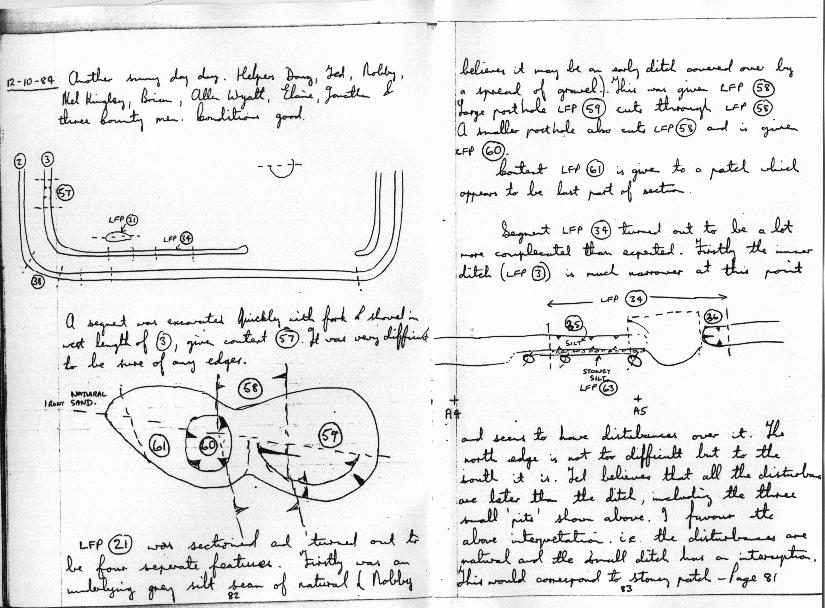 12-10-84 Another sunny day day. Helpers Doug, Ted, Nobby,
Mel Kingley, Brian, Allen Wyatt, Elaine, Jonathan &
three bounty men. Conditions good.
2 3
57
LFP 21
LFP 34
38
A segment was excavated quickly with fork & shovel in
west length of 3, given context 57. It was very difficult
to be sure of any edges.
58
NATURAL
IRONY SAND.
61 60 59
LFP 21 was sectioned and turned out to
be four seperate features. Firstly was an
underlying grey silt seam of natural ( Nobby
82
believes it may be an early ditch covered over by
a spread of gravel). This was given LFP 58
Large posthole LFP 59 cuts through LFP 58
A smaller posthole also cuts LFP 58 and is given
LFP 60.
Context LFP 61 is given to a patch which
appears to be last part of section.
Segment LFP 34 turned out to be a lot
more complecated than expected. Firstly the inner
ditch (LFP 3) is much narrower at this point
LFP 34
35 36
SILT
STONEY
SILT
LFP 63
A4 A5
and seems to have disturbances over it. The
north edge is not too difficult but to the
south it is. Ted believes that all the disturbances
are later than the ditch, including the three
small 'pits' shown above. I favour the
above interpretation. i.e. the disturbances are
natural and the small ditch has an interuption.
This would correspond to stoney patch - Page 81
83